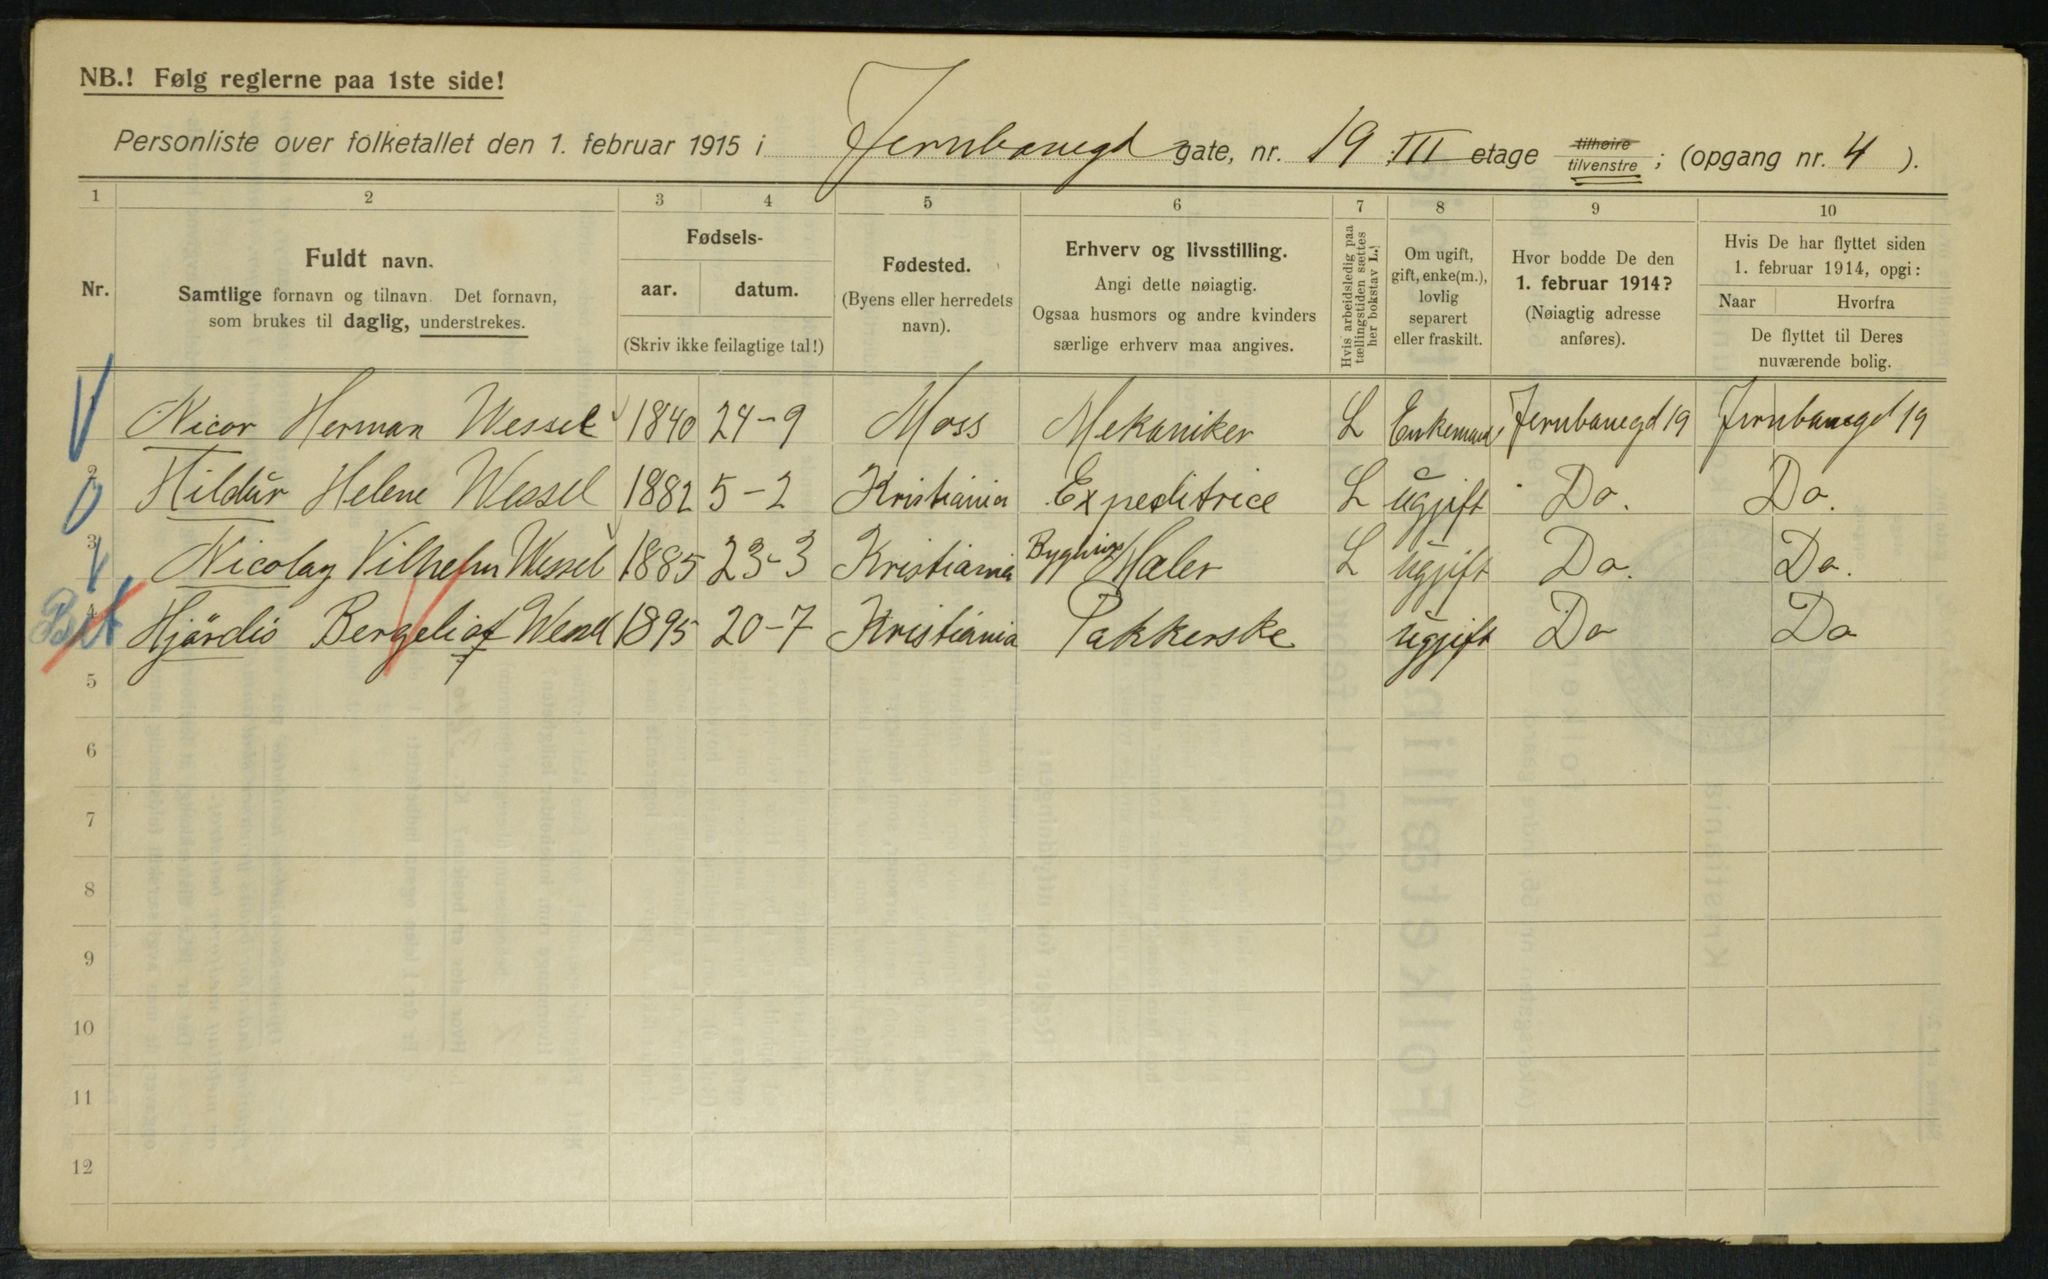 NB.! Følg reglerne paa 1ste side!
Personliste over folketallet den 1. februar 1915 i Jernbanegd gate, nr. 19 III etage tilhøire tilvenstre; (opgang nr. 4).
1 2 3 4 5 6 7 8 9 10
Nr.
Fuldt navn.
Samtlige fornavn og tilnavn. Det fornavn,
som brukes til daglig, understrekes.
Fødsels-
aar. datum.
(Skriv ikke feilagtige tal!)
Fødested.
(Byens eller herredets
navn).
Erhverv og livsstilling.
Angi dette nøiagtig.
Ogsaa husmors og andre kvinders
særlige erhverv maa angives.
Hvis arbeidsledig paa
tællingstiden sættes
her bokstav L.!
Om ugift,
gift, enke(m.),
lovlig
separert
eller fraskilt.
Hvor bodde De den
1. februar 1914?
(Nøiagtig adresse
anføres).
Hvis De har flyttet siden
1. februar 1914, opgi:
Naar Hvorfra
De flyttet til Deres
nuværende bolig.
Nicor Herman Wessel 1840 24-9 Moss Mekaniker L Enkemand Jernbanegd 19 Jernbanegd 19
2 Hildur Helene Wessel 1882 5-2 Kristiania Expeditrice L ugift Do. Do.
3 Nicolay Vilhelm Wessel 1885 23-3 Kristiania Maler L ugift Do. Do.
4 Hjördis Wessel 1895 20-7 Kristiania Pakkerske ugift Do Do
5
6
7
8
9
10
11
12